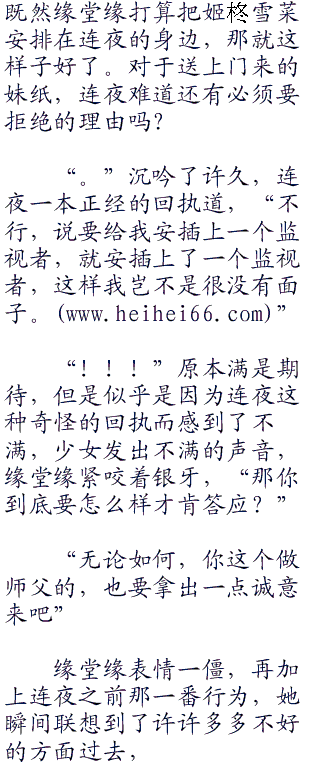 既然缘堂缘打算把姬柊雪菜
安排在连夜的身边，那就这
样子好了。对于送上门来的
妹纸，连夜难道还有必须要
拒绝的理由吗？
“。”沉吟了许久，连
夜一本正经的回执道，“不
行，说要给我安插上一个监
视者，就安插上了一个监视
者，这样我岂不是很没有面
子。(www.heihei66.com)”
“！！！”原本满是期
待，但是似乎是因为连夜这
种奇怪的回执而感到了不
满，少女发出不满的声音，
缘堂缘紧咬着银牙，“那你
到底要怎么样才肯答应？”
“无论如何，你这个做
师父的，也要拿出一点诚意
来吧”
缘堂缘表情一僵，再加
上连夜之前那一番行为，她
瞬间联想到了许许多多不好
的方面过去，